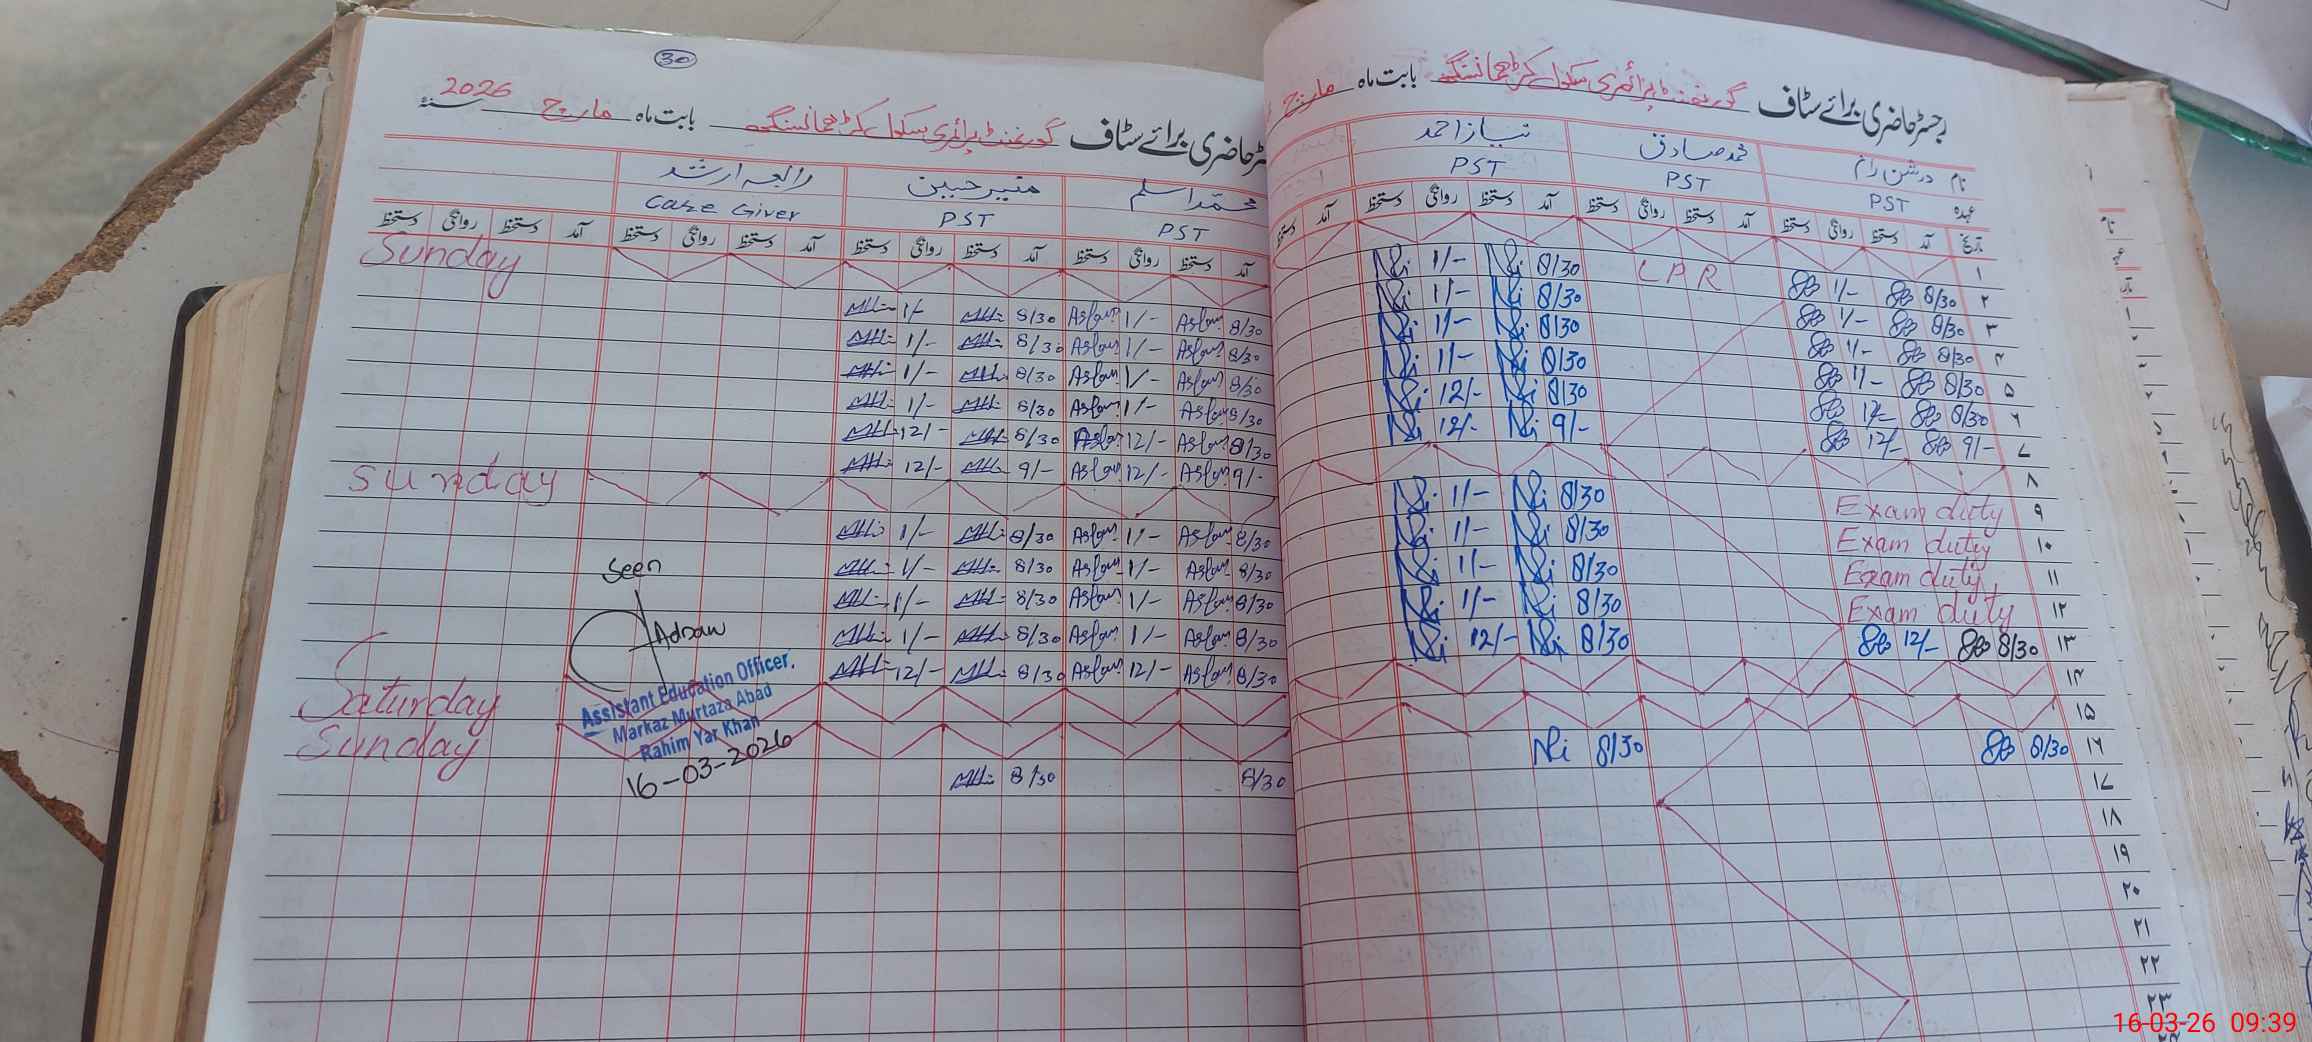 30
رجسٹر حاضری برائے سٹاف گورنمنٹ پرائمری سکول بابت ماہ مارچ
ٹر حاضری برائے سٹاف گورنمنٹ پرائمری سکول بابت ماہ مارچ 2026 سنۂ
نام درشن رام محمد صادق نیاز احمد
عہدہ PST PST PST
تاریخ آمد دستخط روانگی دستخط آمد دستخط روانگی دستخط آمد دستخط روانگی دستخط آمد دستخط
۱
۲ 8/30 1/- LPR 8/30 Ni 1/- Ni
۳ 8/30 1/- 8/30 Ni 1/- Ni
۴ 8/30 1/- 8/30 Ni 1/- Ni
۵ 8/30 1/- 8/30 Ni 1/- Ni
۶ 8/30 12/- 8/30 Ni 12/- Ni
۷ 9/- 12/- 9/- Ni 12/- Ni
۸
۹ Exam duty 8/30 Ni 1/- Ni
۱۰ Exam duty 8/30 Ni 1/- Ni
۱۱ Exam duty 8/30 Ni 1/- Ni
۱۲ Exam duty 8/30 Ni 1/- Ni
۱۳ 8/30 12/- 8/30 Ni 12/- Ni
۱۴
۱۵
۱۶ 8/30 8/30 Ni
۱۷
۱۸
۱۹
۲۰
۲۱
۲۲
۲۳
محمد اسلم منیر حسین رابعہ ارشد
PST PST Care Giver
آمد دستخط روانگی دستخط آمد دستخط روانگی دستخط آمد دستخط روانگی دستخط آمد دستخط روانگی دستخط
Sunday
8/30 Aslam 1/- Aslam 8/30 1/-
8/30 Aslam 1/- Aslam 8/30 1/-
8/30 Aslam 1/- Aslam 8/30 1/-
8/30 Aslam 1/- Aslam 8/30 1/-
8/30 Aslam 12/- Aslam 8/30 12/-
9/- Aslam 12/- Aslam 9/- 12/-
Sunday
8/30 Aslam 1/- Aslam 8/30 1/-
8/30 Aslam 1/- Aslam 8/30 1/-
8/30 Aslam 1/- Aslam 8/30 1/-
8/30 Aslam 1/- Aslam 8/30 1/-
8/30 Aslam 12/- Aslam 8/30 12/-
Saturday
Sunday
8/30 8/30
Seen
Adnan
Assistant Education Officer.
Markaz Murtaza Abad
Rahim Yar Khan
16-03-2026
16-03-26 09:39